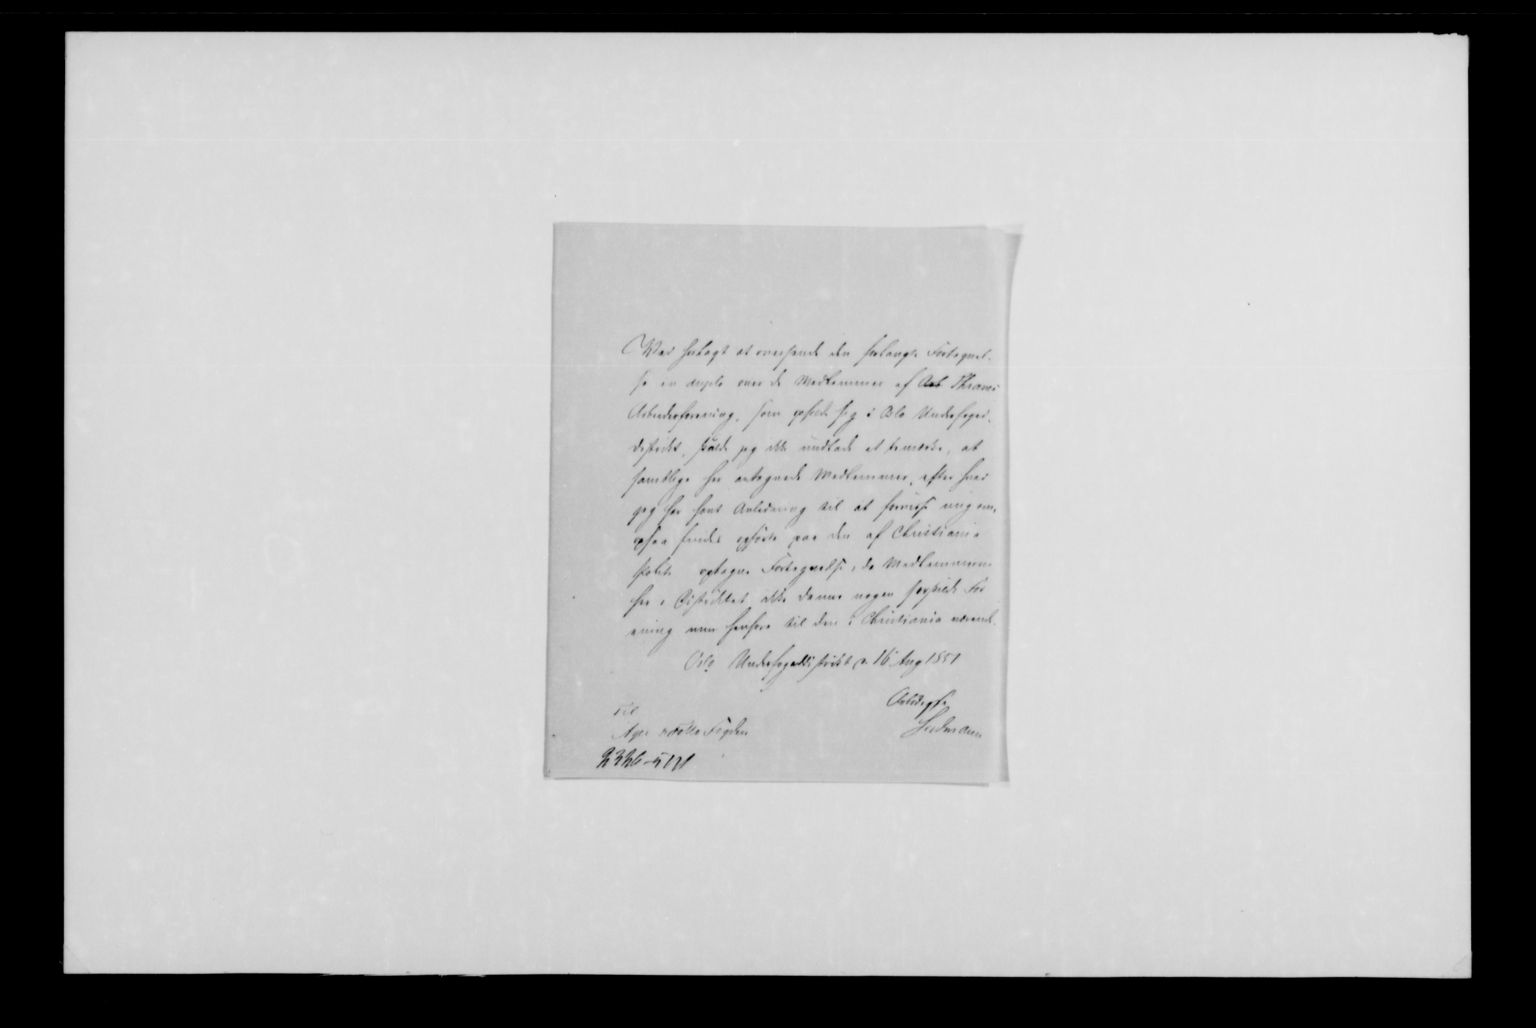 Ved herlagt at oversende den forlangte Fortegnel-
se in duplo over de Medlemmer af Thranes
Arbeiderforening, som opholde sig i Oslo Underfoged-
distrikt, skulde jeg ikke undlade at bemærke, at
samtlige her antegnede Medlemmer, efter hvad
jeg har havt Anledning til at forvisse mig om,
ogsaa findes opførte paa den af Christiania
Politi optagne Fortegnelse, da Medlemmerne
her i Distriktet ikke danne nogen særskilt For
ening men henhøre til den i Christiania værende.
Oslo Underfogeddistrikt d. 16 Aug 1851
Ærbødigst
Til
Agers Fogden